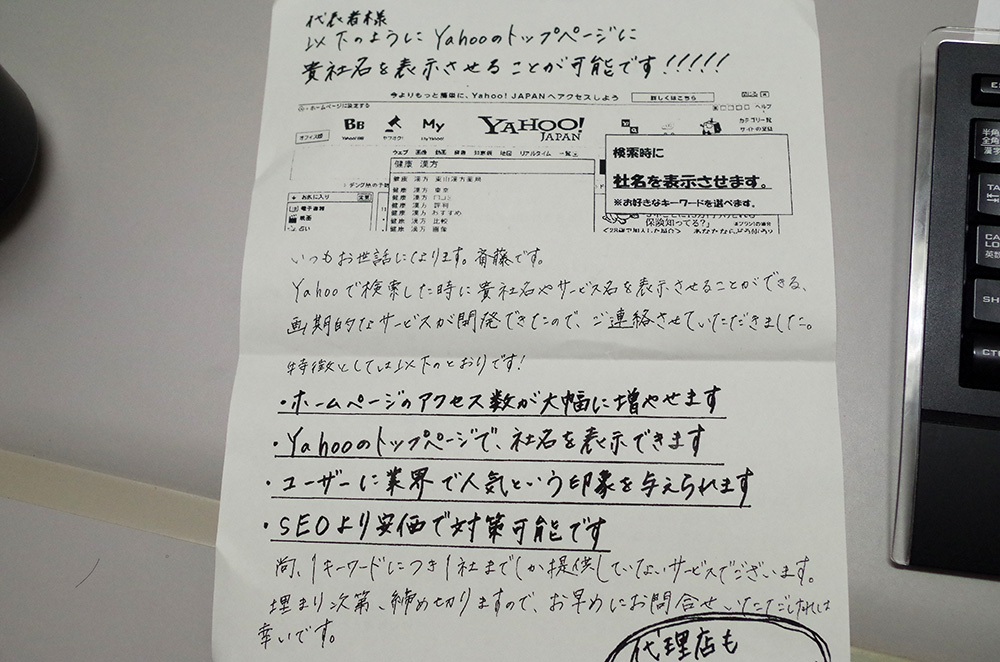 代表者様
以下のようにYahooのトップページに
貴社名を表示させることが可能です!!!!!
今よりもっと簡単に、Yahoo! JAPANへアクセスしよう 詳しくはこちら
ホームページに設定する ヘルプ
BB My YAHOO! JAPAN カテゴリ一覧
オフィス版
ウェブ 画像 動画 辞書 知恵袋 地図 リアルタイム 一覧
健康 漢方
健康 漢方 東山漢方薬局
健康 漢方 東京
健康 漢方 口コミ
健康 漢方 評判
健康 漢方 おすすめ
健康 漢方 比較
健康 漢方 画像
検索時に
社名を表示させます。
※お好きなキーワードを選べます。
お気に入り 変更
電子書籍
映画
占い
保険知ってる?」
いつもお世話になります。斉藤です。
Yahooで検索した時に貴社名やサービス名を表示させることができる、
画期的なサービスが開発できたので、ご連絡させていただきました。
特徴としては以下のとおりです!
・ホームページのアクセス数が大幅に増やせます
・Yahooのトップページで、社名を表示できます
・ユーザーに業界で人気という印象を与えられます
・SEOより安価で対策可能です
尚、1キーワードにつき1社までしか提供していないサービスでございます。
埋まり次第、締め切りますので、お早めにお問合せいただければ
幸いです。
代理店も
半角/
全角
漢字
英数